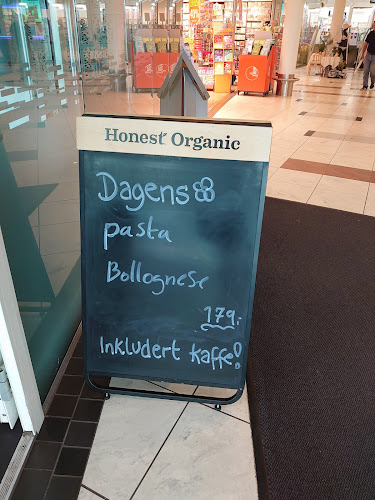 Honest Organic
Dagens
pasta
Bollognese
179,-
Inkludert kaffe!